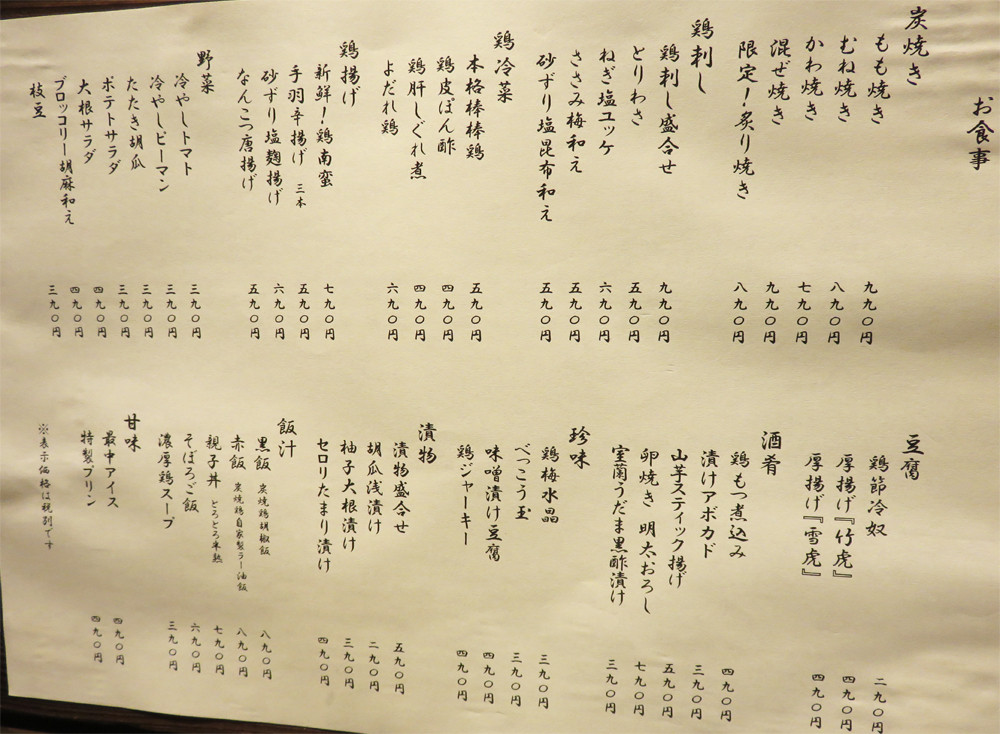 お食事
炭焼き
もも焼き 九九〇円
むね焼き 八九〇円
かわ焼き 七九〇円
混ぜ焼き 九九〇円
限定！炙り焼き 八九〇円
鶏刺し
鶏刺し盛合せ 九九〇円
とりわさ 五九〇円
ねぎ塩ユッケ 六九〇円
ささみ梅和え 五九〇円
砂ずり塩昆布和え 五九〇円
鶏冷菜
本格棒棒鶏 五九〇円
鶏皮ぽん酢 四九〇円
鶏肝しぐれ煮 四九〇円
よだれ鶏 六九〇円
鶏揚げ
新鮮！鶏南蛮 七九〇円
手羽辛揚げ 三本 五九〇円
砂ずり塩麹揚げ 六九〇円
なんこつ唐揚げ 五九〇円
野菜
冷やしトマト 三九〇円
冷やしピーマン 三九〇円
たたき胡瓜 三九〇円
ポテトサラダ 三九〇円
大根サラダ 四九〇円
ブロッコリー胡麻和え 四九〇円
枝豆 三九〇円
豆腐
鶏節冷奴 二九〇円
厚揚げ『竹虎』 四九〇円
厚揚げ『雪虎』 四九〇円
酒肴
鶏もつ煮込み 四九〇円
漬けアボカド 三九〇円
山芋スティック揚げ 五九〇円
卵焼き 明太おろし 七九〇円
室蘭うだま黒酢漬け 三九〇円
珍味
鶏梅水晶 三九〇円
べっこう玉 三九〇円
味噌漬け豆腐 四九〇円
鶏ジャーキー 四九〇円
漬物
漬物盛合せ 五九〇円
胡瓜浅漬け 二九〇円
柚子大根漬け 三九〇円
セロリたまり漬け 四九〇円
飯汁
黒飯 炭焼鶏胡椒飯 八九〇円
赤飯 炭焼鶏自家製ラー油飯 八九〇円
親子丼 とろとろ半熟 七九〇円
そぼろご飯 六九〇円
濃厚鶏スープ 三九〇円
甘味
最中アイス 四九〇円
特製プリン 四九〇円
※表示価格は税別です